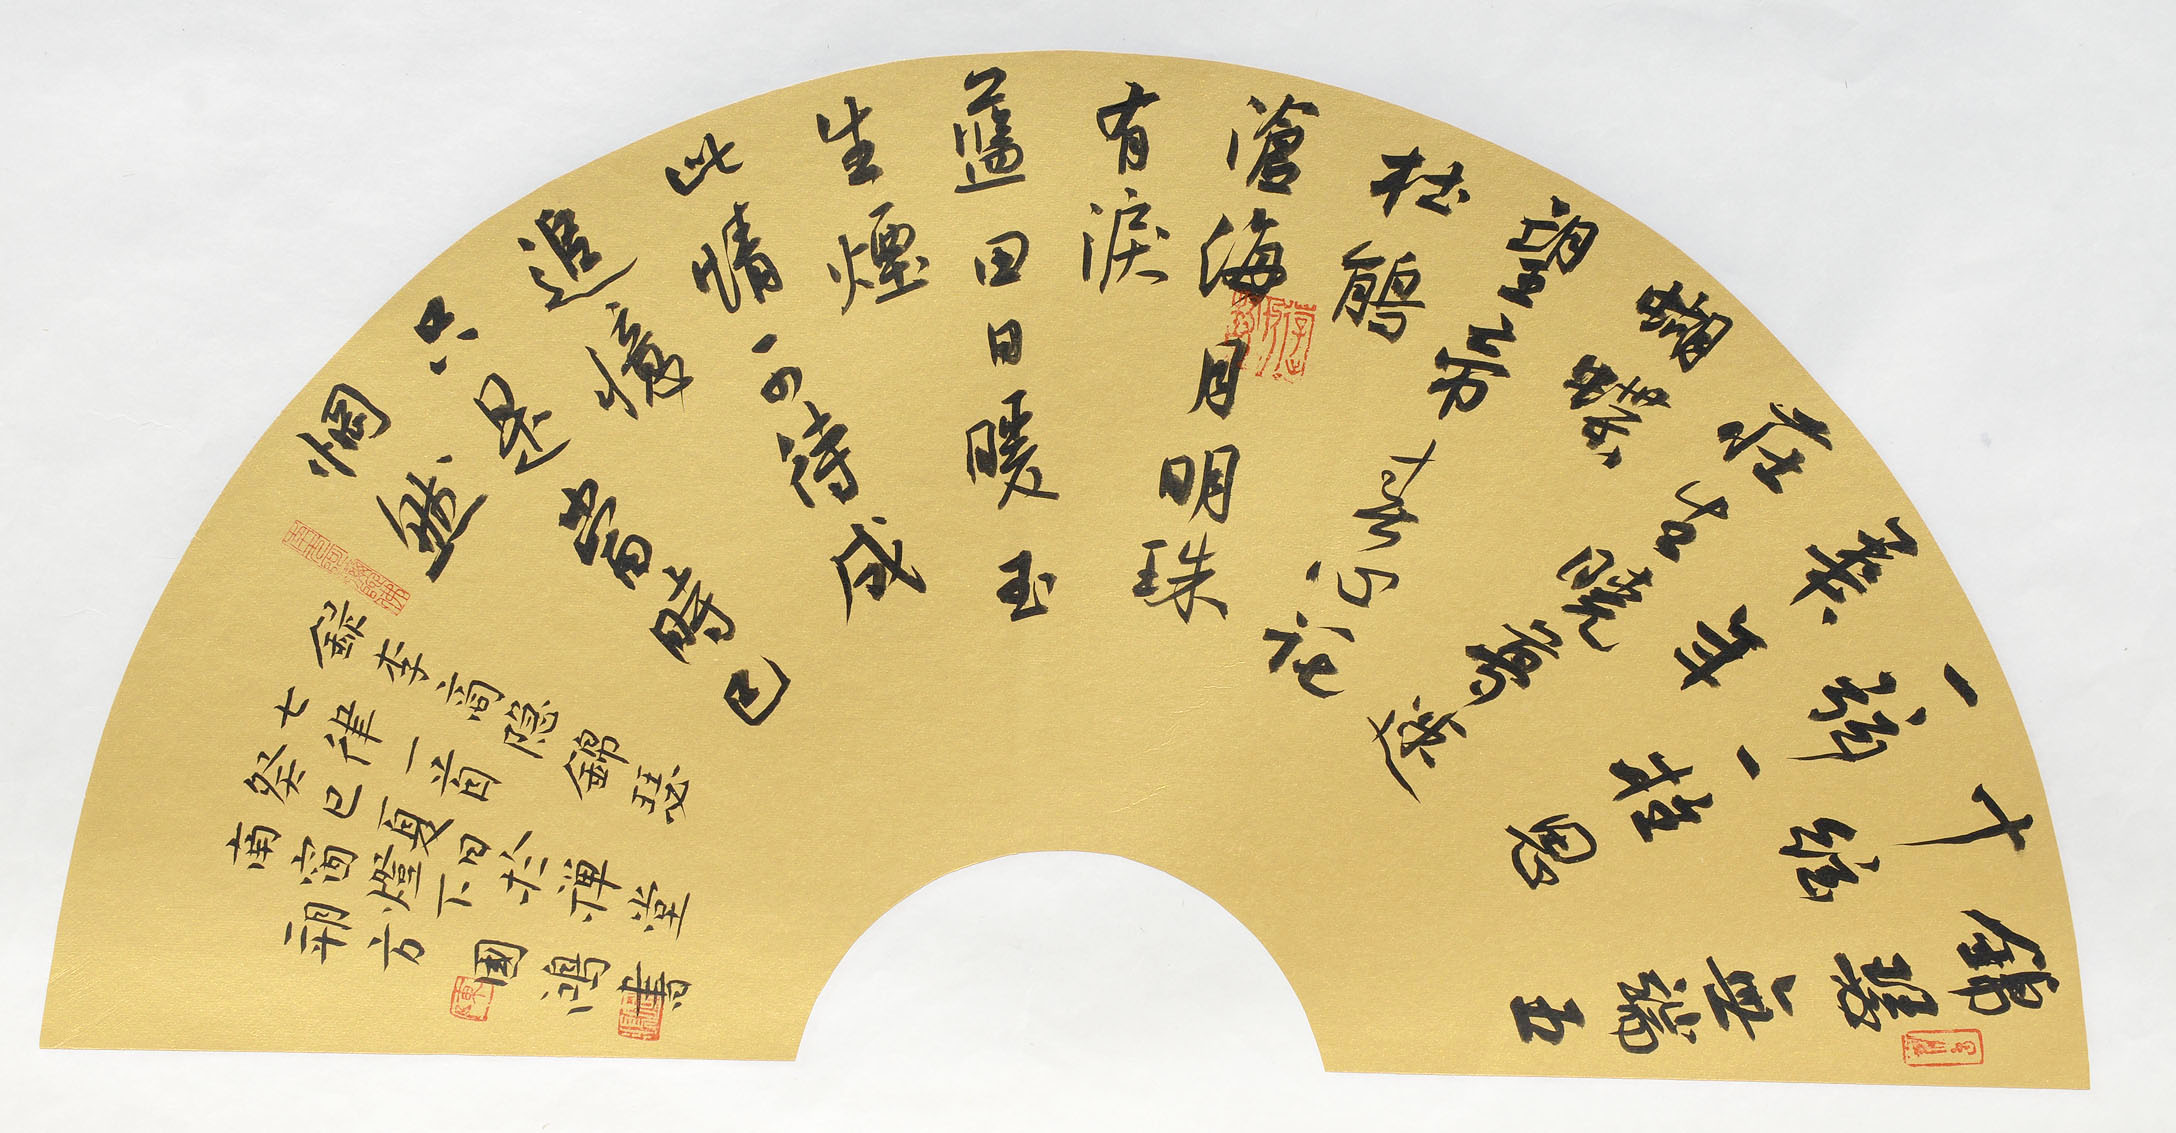 錦瑟無端五
十絃
一弦一柱思
華年
莊生曉夢迷
蝴蝶
望帝春心託
杜鵑
滄海月明珠
有淚
藍田日暖玉
生煙
此情可待成
追憶
只是當時已
惘然
錄李商隱錦瑟
七律一首
癸巳夏日於禪堂
南窗燈下
朔方國鴻書